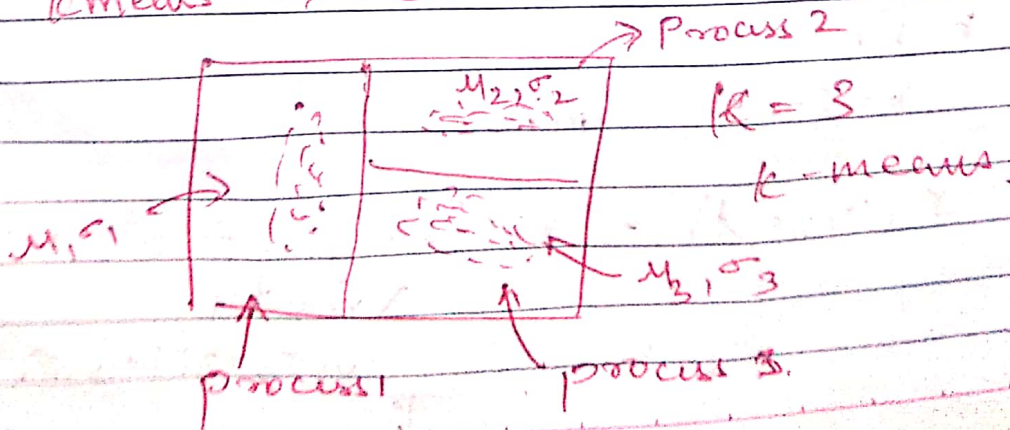 Kmeans
Process 2
μ2, σ2
K = 3
k-means.
μ1 σ1
μ3, σ3
process 1
process 3.